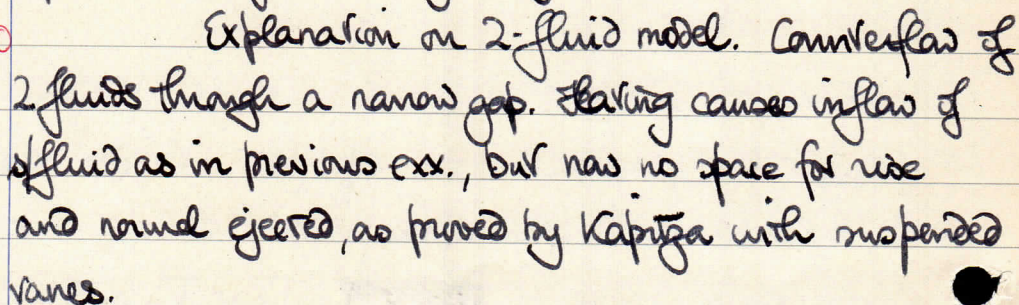 Explanation on 2-fluid model. Counterflow of
2 fluids through a narrow gap. Heating causes inflow of
s/fluid as in previous exx., but now no space for rise
and normal ejected, as proved by Kapitza with suspended
vanes.